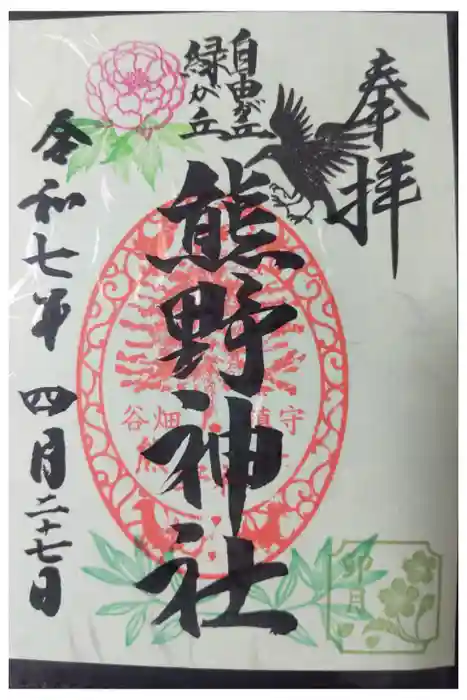 奉拝
自由が丘
緑が丘
熊野神社
令和七年 四月二十七日
谷畑 鎮守
熊
卯月